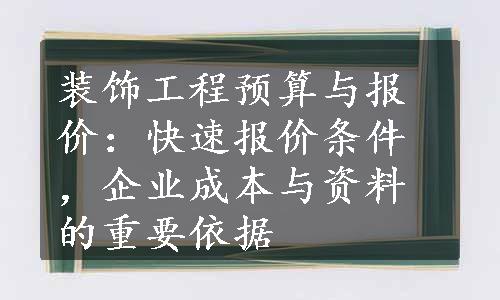 装饰工程预算与报
价：快速报价条件
，企业成本与资料
的重要依据